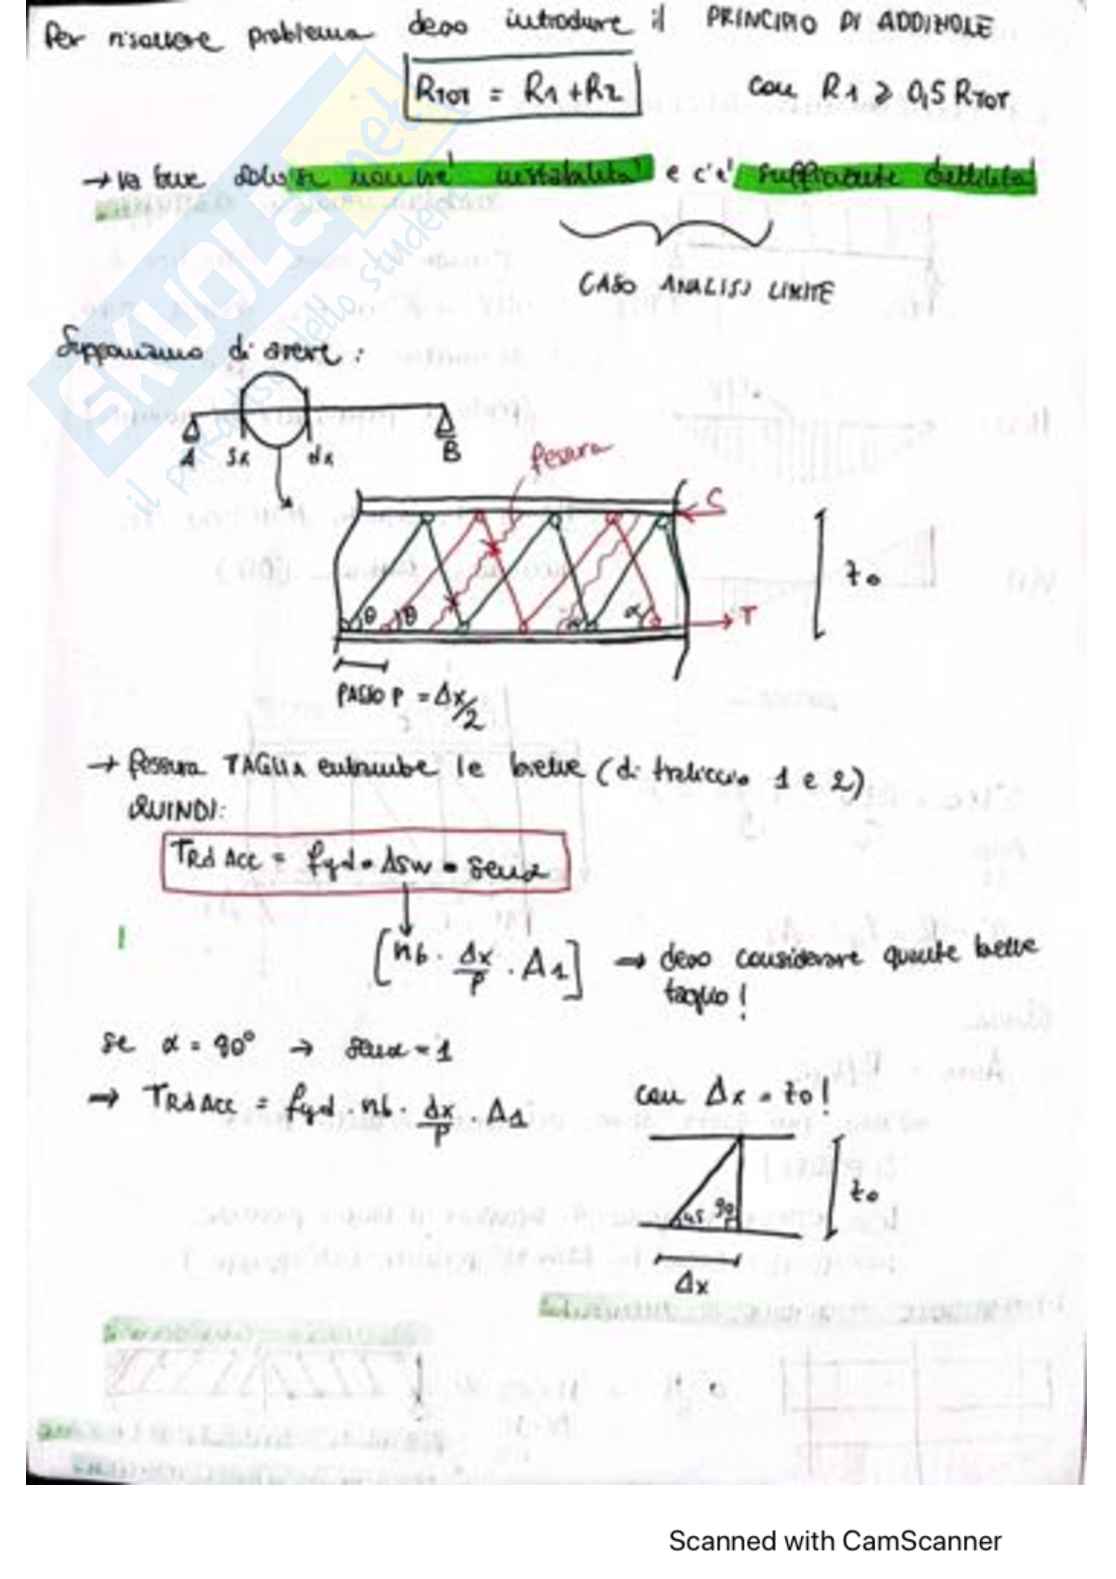 Per risolvere problema devo introdurre il PRINCIPIO DI ADDIZIONE
RTOT = R1+R2 con R1 ≥ 0,5 RTOT
→ va bene dove non c'è instabilità e c'è sufficiente duttilità
CASO ANALISI LIMITE
Supponiamo di avere :
A Sx dx B
fessura
C
θ θ α
T
z0
PASSO P = Δx/2
→ fessura TAGLIA entrambe le bielle (di traliccio 1 e 2)
QUINDI:
TRd Acc = fyd • Asw • senα
[nb · Δx/P · A1] → devo considerare quante bielle
taglio !
se α = 90° → senα = 1
→ TRd Acc = fyd · nb · Δx/P · A1
con Δx = z0 !
45 90
z0
Δx
SKUOLA.net
il paradiso dello studente
Scanned with CamScanner